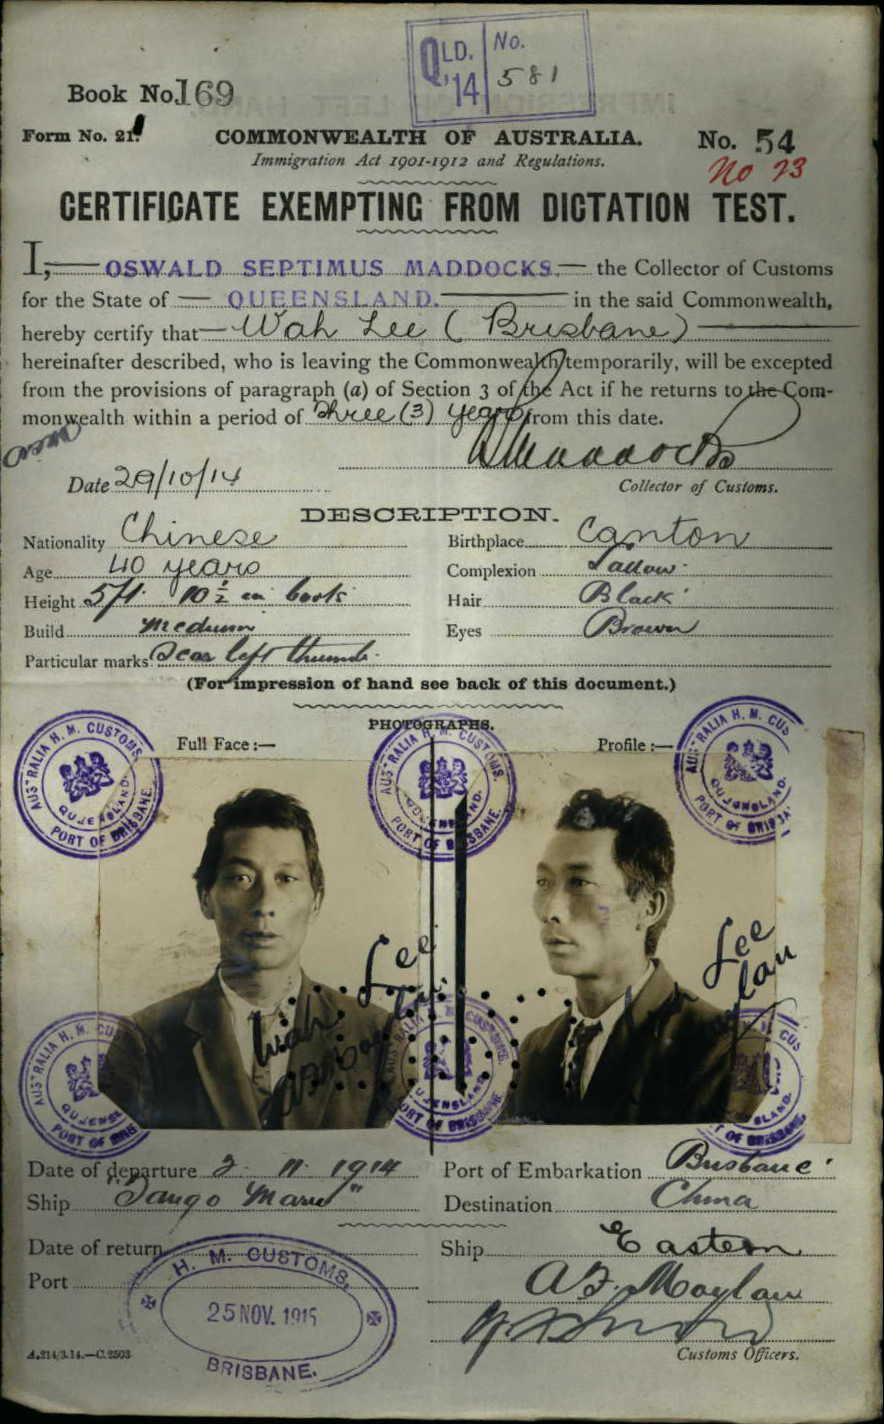 QLD. '14 No. 581
Book No. 169
Form No. 21.
COMMONWEALTH OF AUSTRALIA. No. 54
Immigration Act 1901-1912 and Regulations. No 73
CERTIFICATE EXEMPTING FROM DICTATION TEST.
I, OSWALD SEPTIMUS MADDOCKS, the Collector of Customs
for the State of QUEENSLAND. in the said Commonwealth,
hereby certify that Wah Lee (Brisbane)
hereinafter described, who is leaving the Commonwealth temporarily, will be excepted
from the provisions of paragraph (a) of Section 3 of the Act if he returns to the Com-
monwealth within a period of three (3) years from this date.
OSMaddocks
Date 29/10/14 Collector of Customs.
DESCRIPTION.
Nationality Chinese Birthplace Canton
Age 40 years Complexion Sallow
Height 5ft 10½ in boots Hair Black
Build medium Eyes Brown
Particular marks Scar left thumb.
(For impression of hand see back of this document.)
PHOTOGRAPHS.
Full Face:— Profile:—
AUSTRALIA H. M. CUSTOMS. QUEENSLAND. PORT OF BRISBANE.
AUSTRALIA H. M. CUSTOMS. QUEENSLAND. PORT OF BRISBANE.
AUSTRALIA H. M. CUS QUEENSLAND. PORT OF BRISBA
Wah Lee
Wah Lee
AUSTRALIA H. M. CU QUEENSL PORT OF BRIS
QUEENSLAND PORT OF BRISBANE.
CUS SLAND. T OF BRISBANE.
Date of departure 2 11 1914 Port of Embarkation Brisbane
Ship "Tango Maru" Destination China
Date of return Ship Eastern
Port AF. Moylan
H. M. CUSTOMS,
25 NOV. 1915
BRISBANE.
A.214/3.14.—C.2503 Customs Officers.